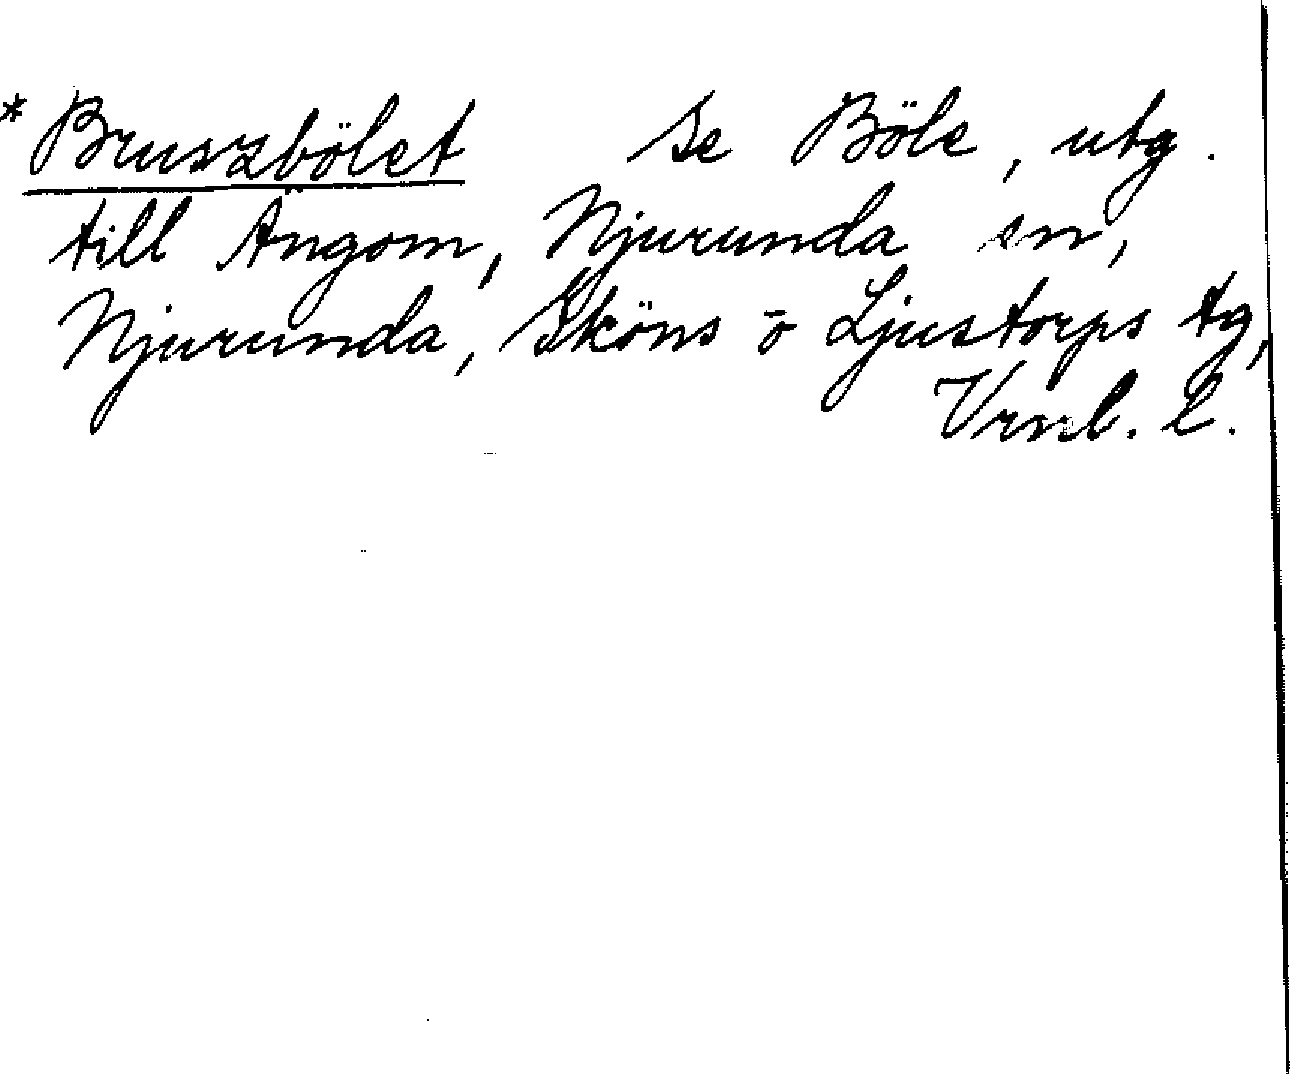 * Bruszbölet se Böle, utg.
till Ängom, Njurunda sn,
Njurunda, Sköns o Ljustorps tg,
Vrnl. l.